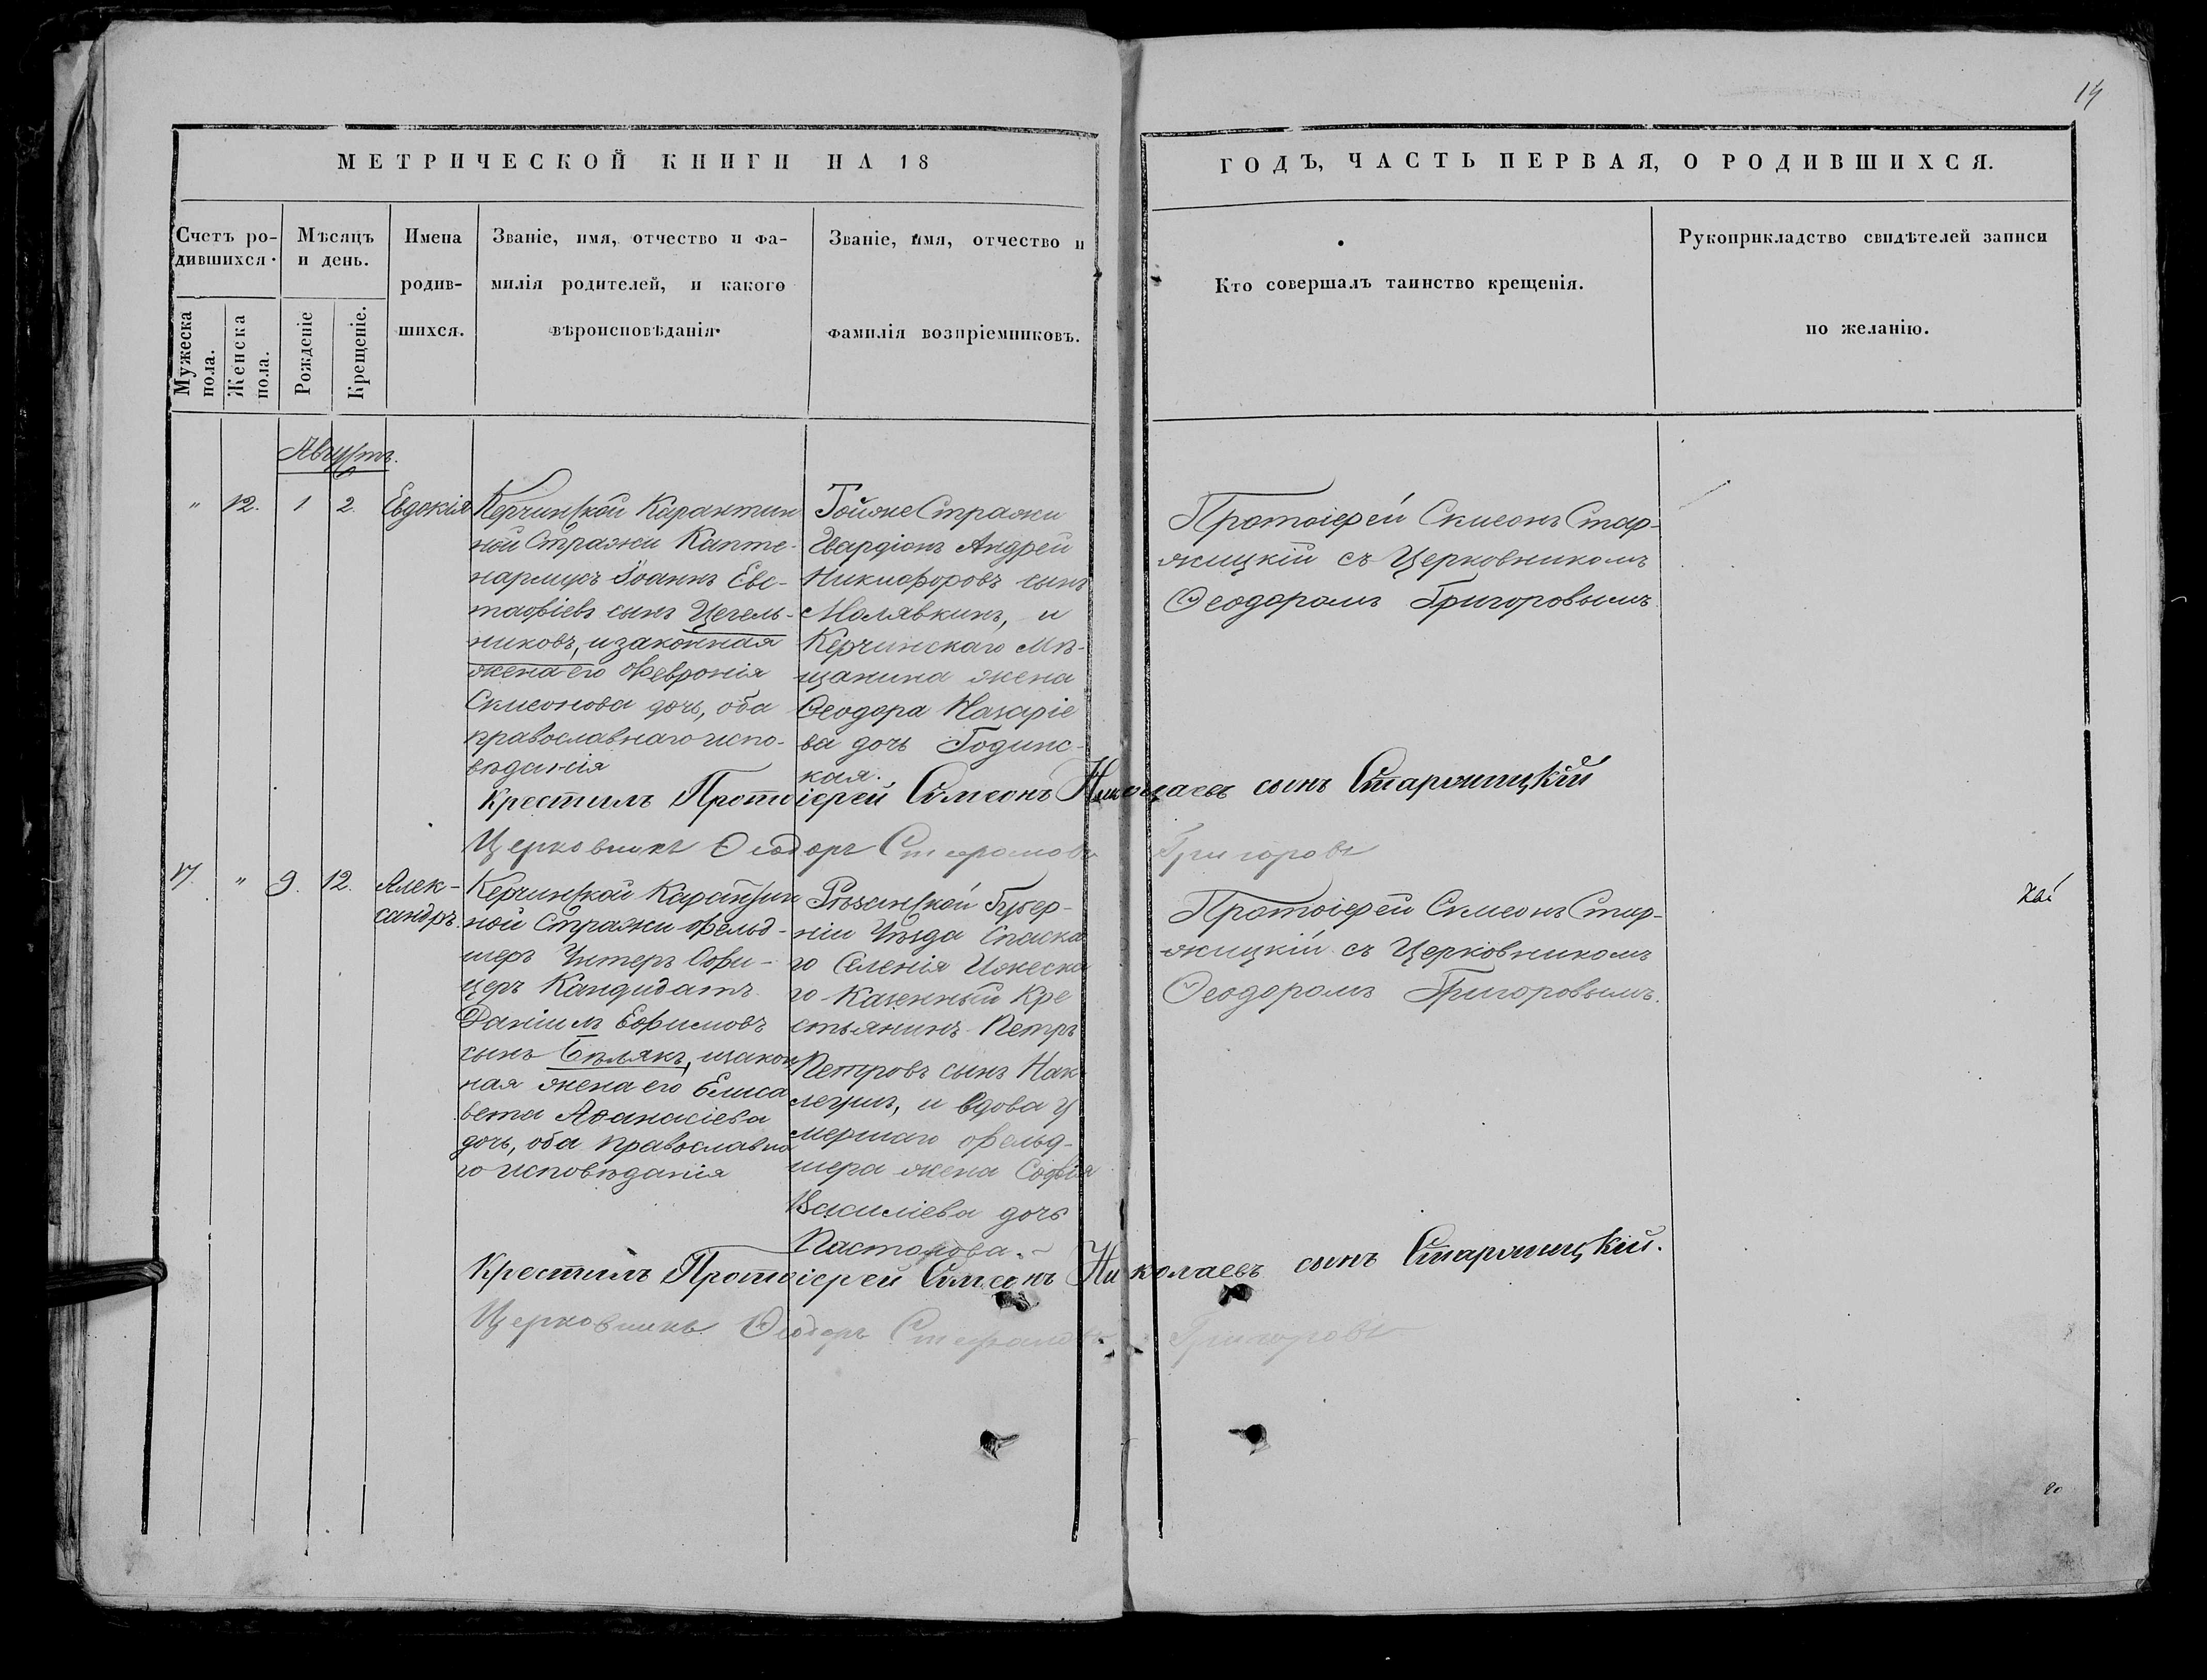 14
МЕТРИЧЕСКОЙ КНИГИ НА 18
ГОДЪ, ЧАСТЬ ПЕРВАЯ, О РОДИВШИХСЯ.
Счетъ ро-
дившихся.
Мужеска
пола.
Женска
пола.
Мѣсяцъ
и день.
Рожденіе
Крещеніе.
Имена
родив-
шихся.
Званіе, имя, отчество и фа-
милія родителей, и какого
вѣроисповѣданія.
Званіе, имя, отчество и
фамилія возпріемниковъ.
Кто совершалъ таинство крещенія.
Рукоприкладство свидѣтелей записи
по желанію.
Августъ.
" 12. 1 2. Евдокія
Керчинской Карантин
ной Стражи Капте-
нармусъ Іоаннъ Евс-
тафіевъ сынъ Цегель-
никовъ, и законная
жена его Февронія
Симеонова дочь, оба
православнаго испо-
вѣданія
Тойже Стражи
Гвардіонъ Андрей
Никифоровъ сынъ
Малявкинъ, и
Керчинскаго Мѣ-
щанина жена
Ѳеодора Назаріе
ва дочь Годинс-
кая.
Протоіерей Симеонъ Стар-
жицкій съ Церковникомъ
Ѳеодоромъ Григоровымъ.
Крестилъ Протоіерей Симеонъ Николаевъ сынъ Старжицкій
Церковникъ Ѳеодоръ Стефановъ Григоровъ
17. " 9. 12. Алек-
сандръ.
Керчинской Карантин
ной Стражи фельд-
шеръ Унтеръ Офи-
церъ Кандидатъ
Даніилъ Ефимовъ
сынъ Бѣлякъ, и закон
ная жена его Елиса
вета Аѳанасіева
дочь, оба православна
го исповѣданія
Рязанской Губер-
ніи Уѣзда Спаска
го Селенія Ижеска
го Казенный Кре
стьянинъ Петръ
Петровъ сынъ
и вдова у
мершаго фельд-
шера жена Софія
Василіева дочь
Пасторова.
Протоіерей Симеонъ Стар-
жицкій съ Церковникомъ
Ѳеодоромъ Григоровымъ.
Крестилъ Протоіерей Симеонъ Николаевъ сынъ Старжицкій.
Церковникъ Ѳеодоръ Стефановъ Григоровъ